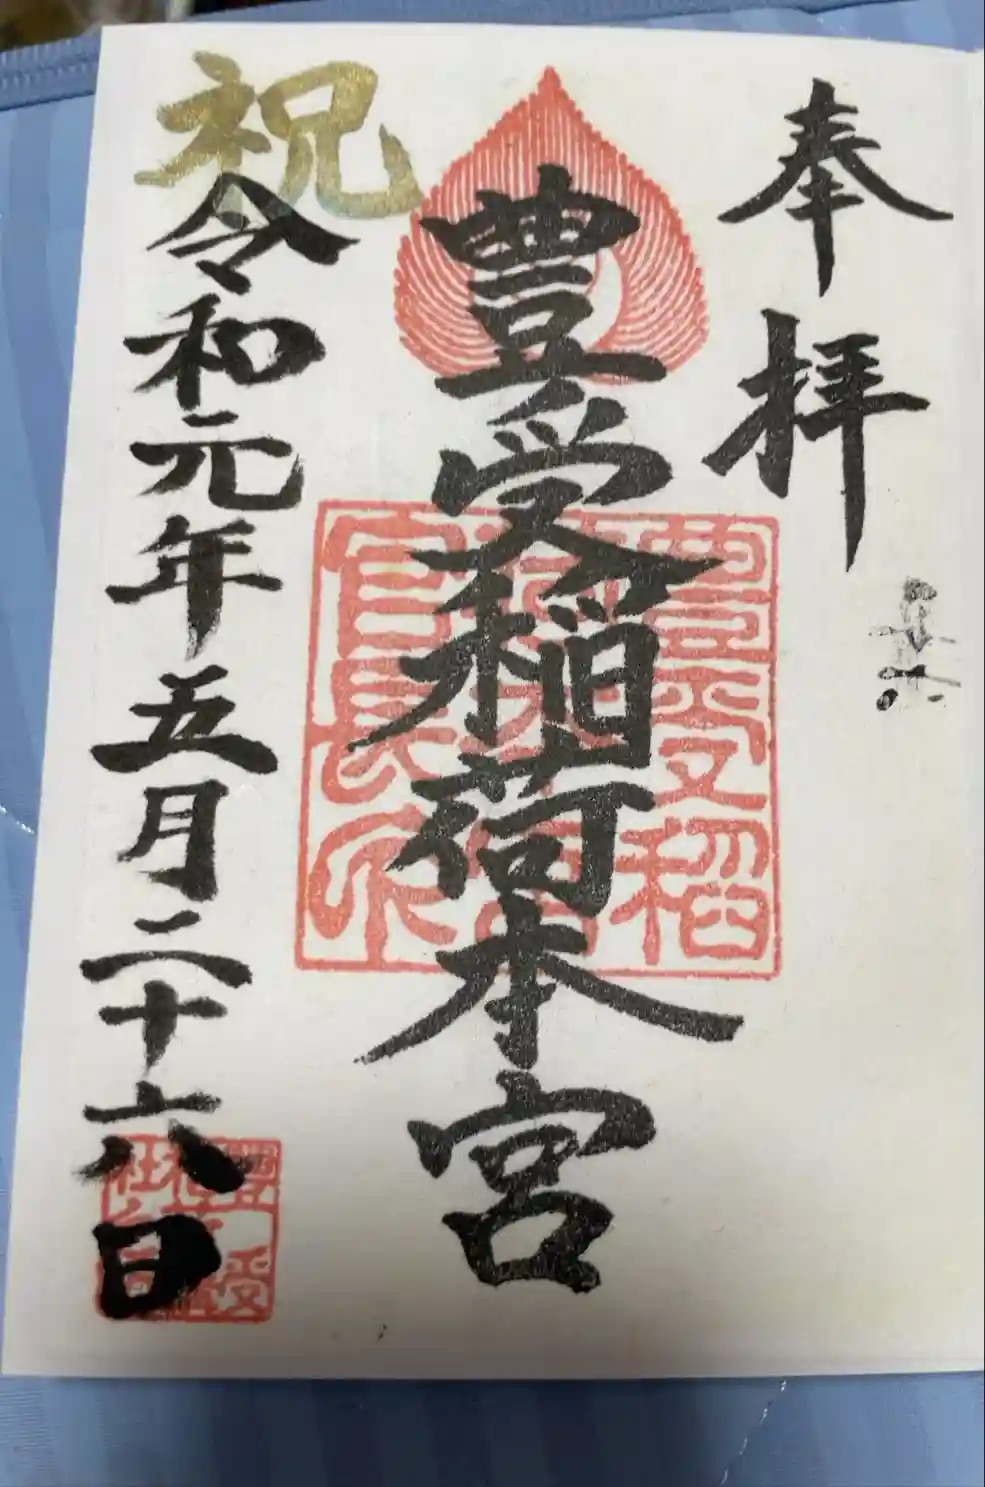 奉拝
豊受稲荷本宮
祝
令和元年五月二十六日